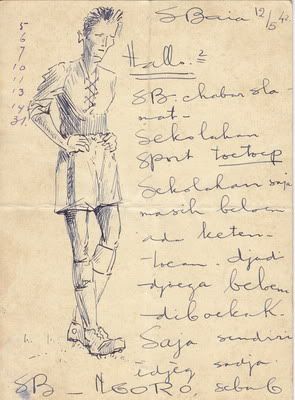 SBaia 12/5 42.
5
6
7
10
11
13
14
31.
Hallo.
SB. chabar sla-
mat-
Sekolahan
Sport toetoep
Sekolahan saja
masih beloem
ada keten-
toean. djud
djoega beloem
diboekak.
Saja sendiri
idjeg sadja.
SB - NGORO. sebab